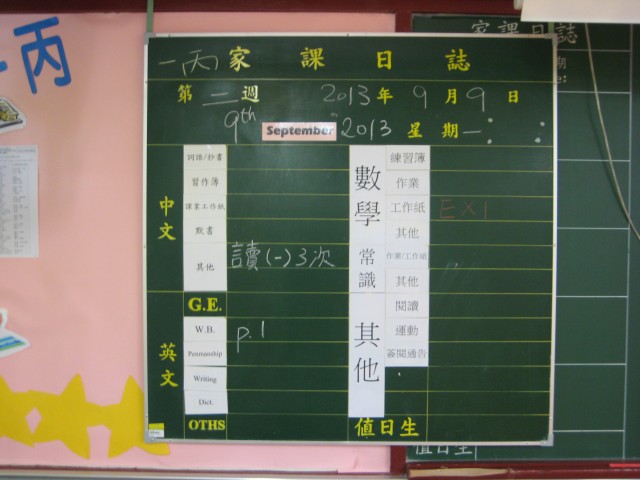 一丙
家課日誌
一丙 家課日誌
第二週 2013年9月9日
9th September 2013 星期一:
中文
詞語/抄書
習作簿
課業工作紙
默書
其他 讀(一)3次
英文
G.E.
W.B. p.1
Penmanship
Writing
Dict.
OTHS
數學
練習簿
作業
工作紙 EX1
其他
常識
作業/工作紙
其他
其他
閱讀
運動
簽閱通告
值日生
值日生